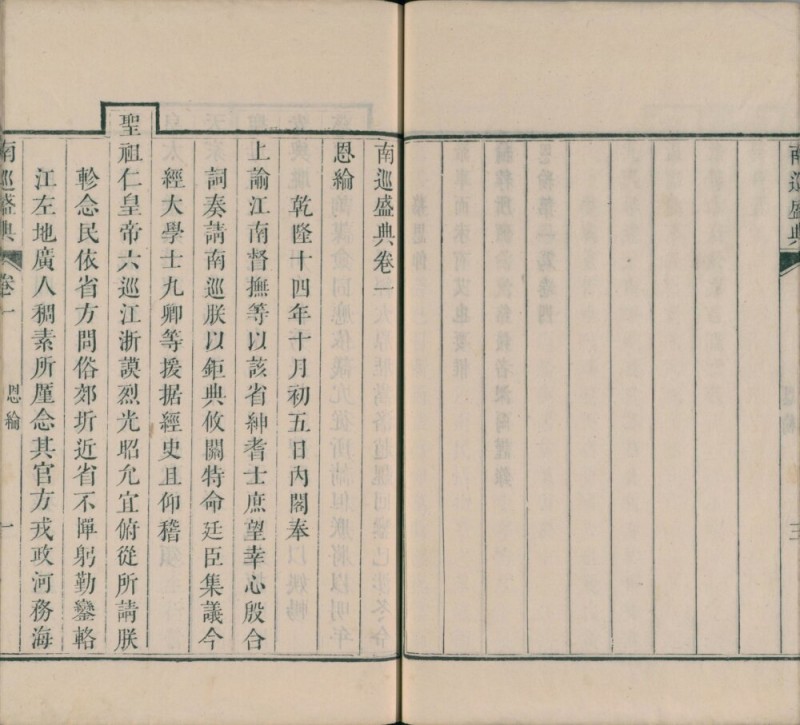 南巡盛典
三
南巡盛典卷一
恩綸
乾隆十四年十月初五日內閣奉
上諭江南督撫等以該省紳耆士庶望幸心殷合
詞奏請南巡朕以鉅典攸關特命廷臣集議今
經大學士九卿等援据經史且仰稽
聖祖仁皇帝六巡江浙謨烈光昭允宜俯從所請朕
軫念民依省方問俗郊圻近省不憚躬勤鑾輅
江左地廣人稠素所厪念其官方戎政河務海
南巡盛典 卷一 恩綸 一